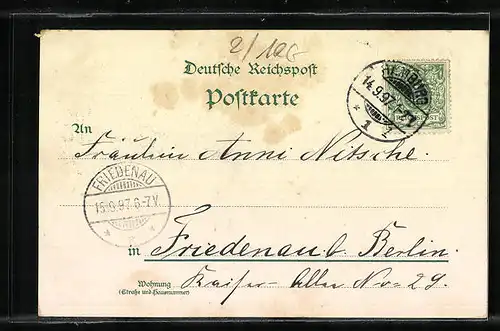 2/120
Deutsche Reichspost
Postkarte
HAMBURG
14.9.97. 6-7 N
* 1 1
An
Fräulein Anni Nitsche.
FRIEDENAU
15.9.97. 6-7 V.
* * *
in Friedenau b. Berlin.
Wohnung Kaiser-Allee No 29.
(Straße und Hausnummer)